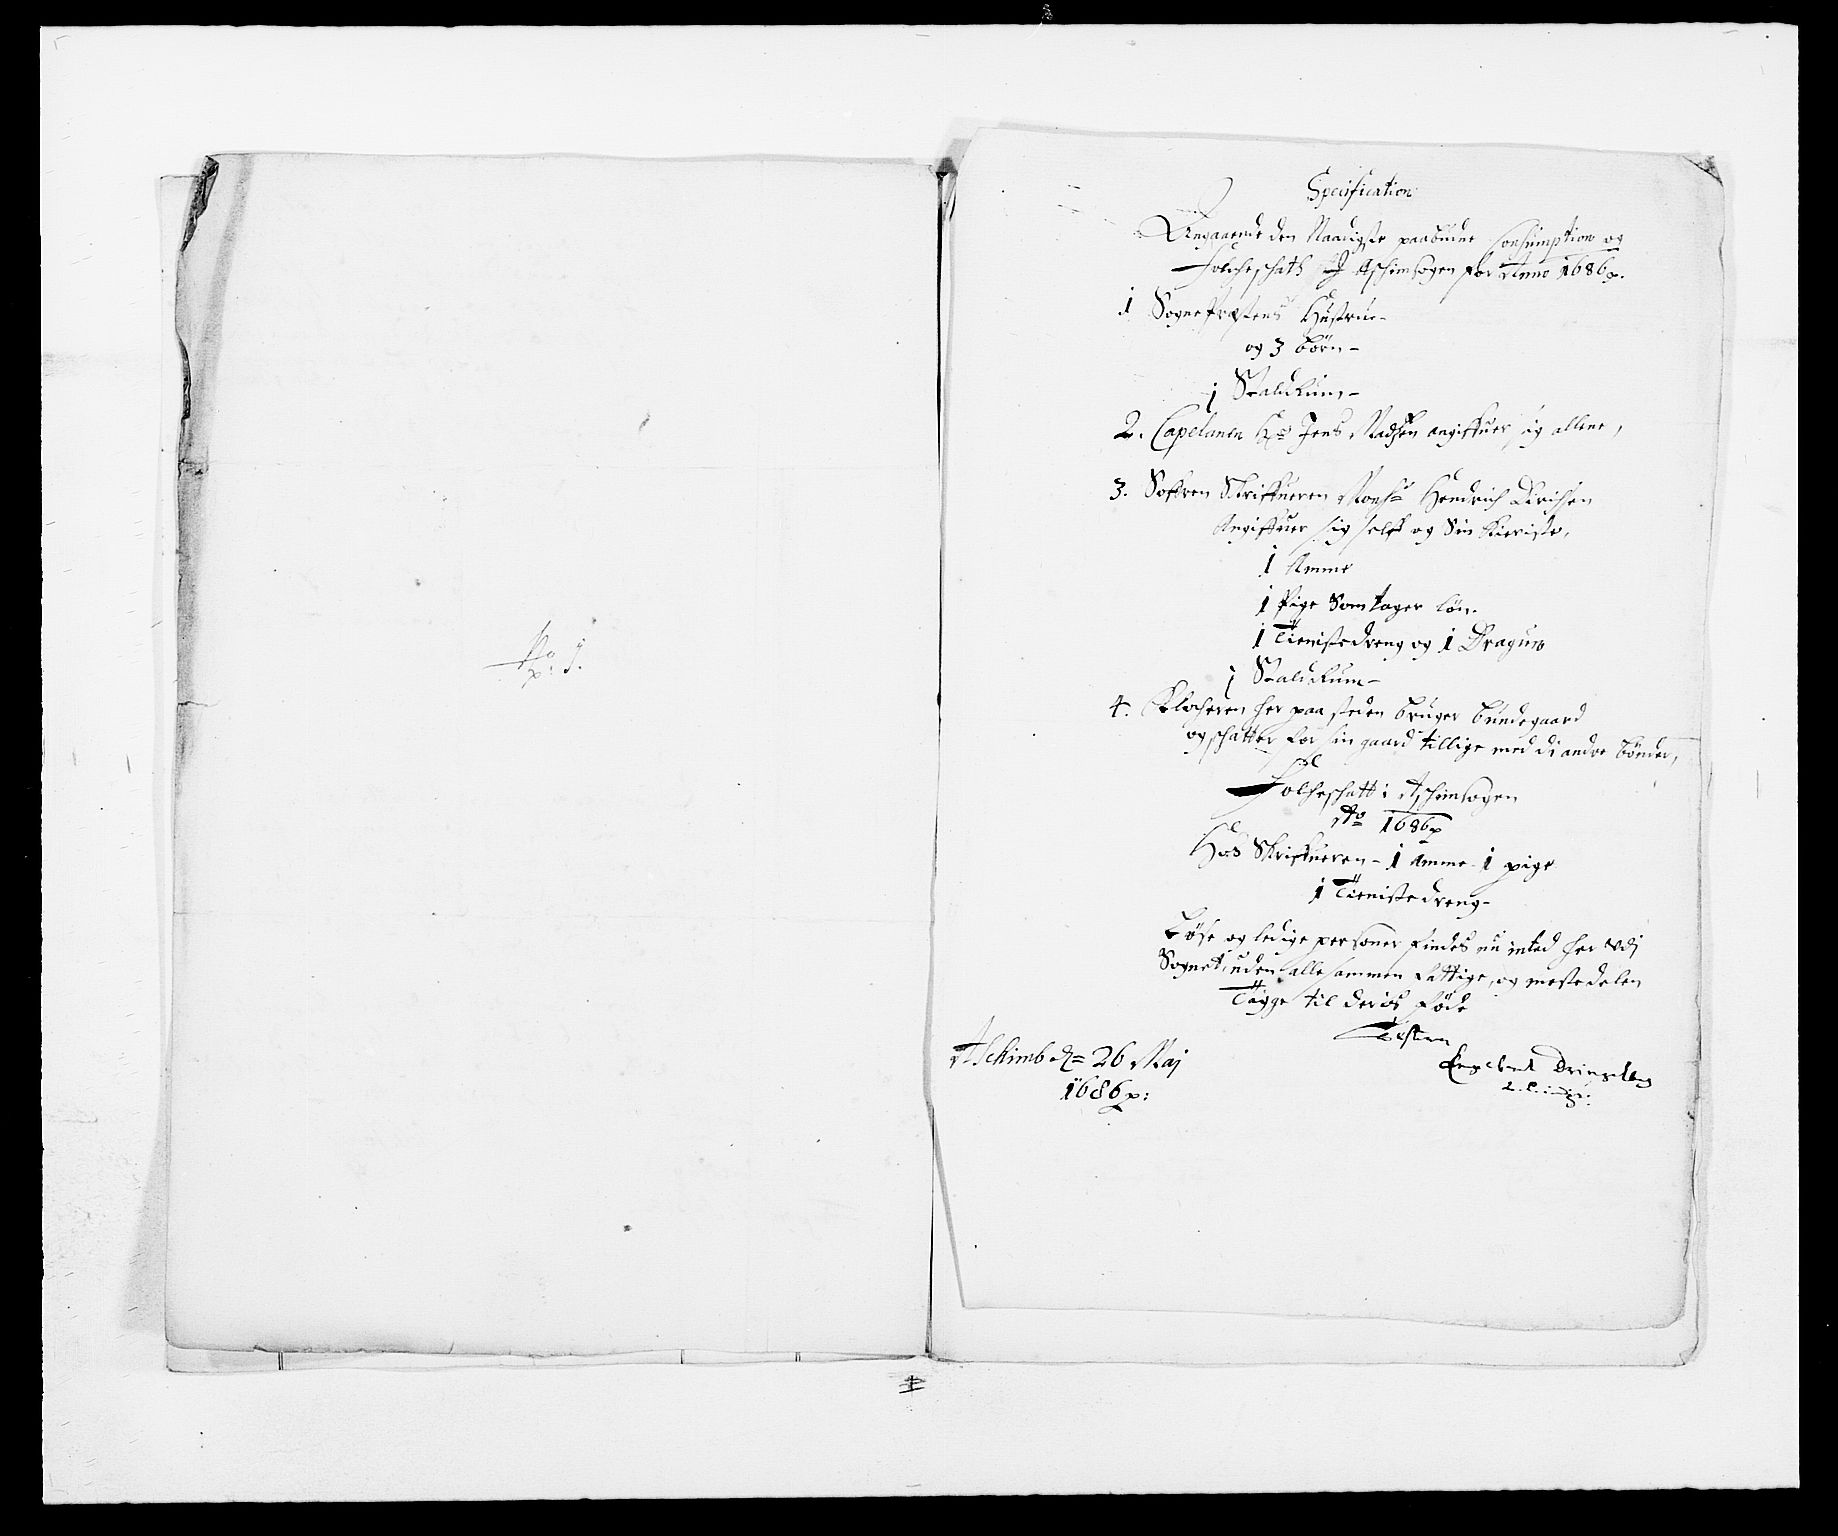 No 1.
Specification
Angaaende den Naadigste paabudne Consumption og
Folcheschath Aschimsogen for Anno 1686
1 SognePræstens Hustrue -
og 3 børn -
1 Staldrum -
2. Capelanen Hr Jens Madsen angiffuer sig allene,
3. Sorenskriffueren Monsr Hendrich Dirichsen
Angiffuer sig self og Sin Kieriste,
1 Amme
1 Pige Som tager løn.
1 Tienistedreng og 1 Dragun
1 Staldrum -
4. Klocheren her paa steden bruger bundegaard
og schatter for sin gaard tillige med di andre bønder,
Folcheschatt i Aschimsogen
Ao 1686
Hos Skriffueren - 1 Amme 1 pige
1 Tienistedreng -
Løse og ledige personer findes nu inted her udj
Sognet, uden allesammen fattige, og mestedelen
Tigge til deris føde
Testerer
Aschimb d. 26 Maj
1686